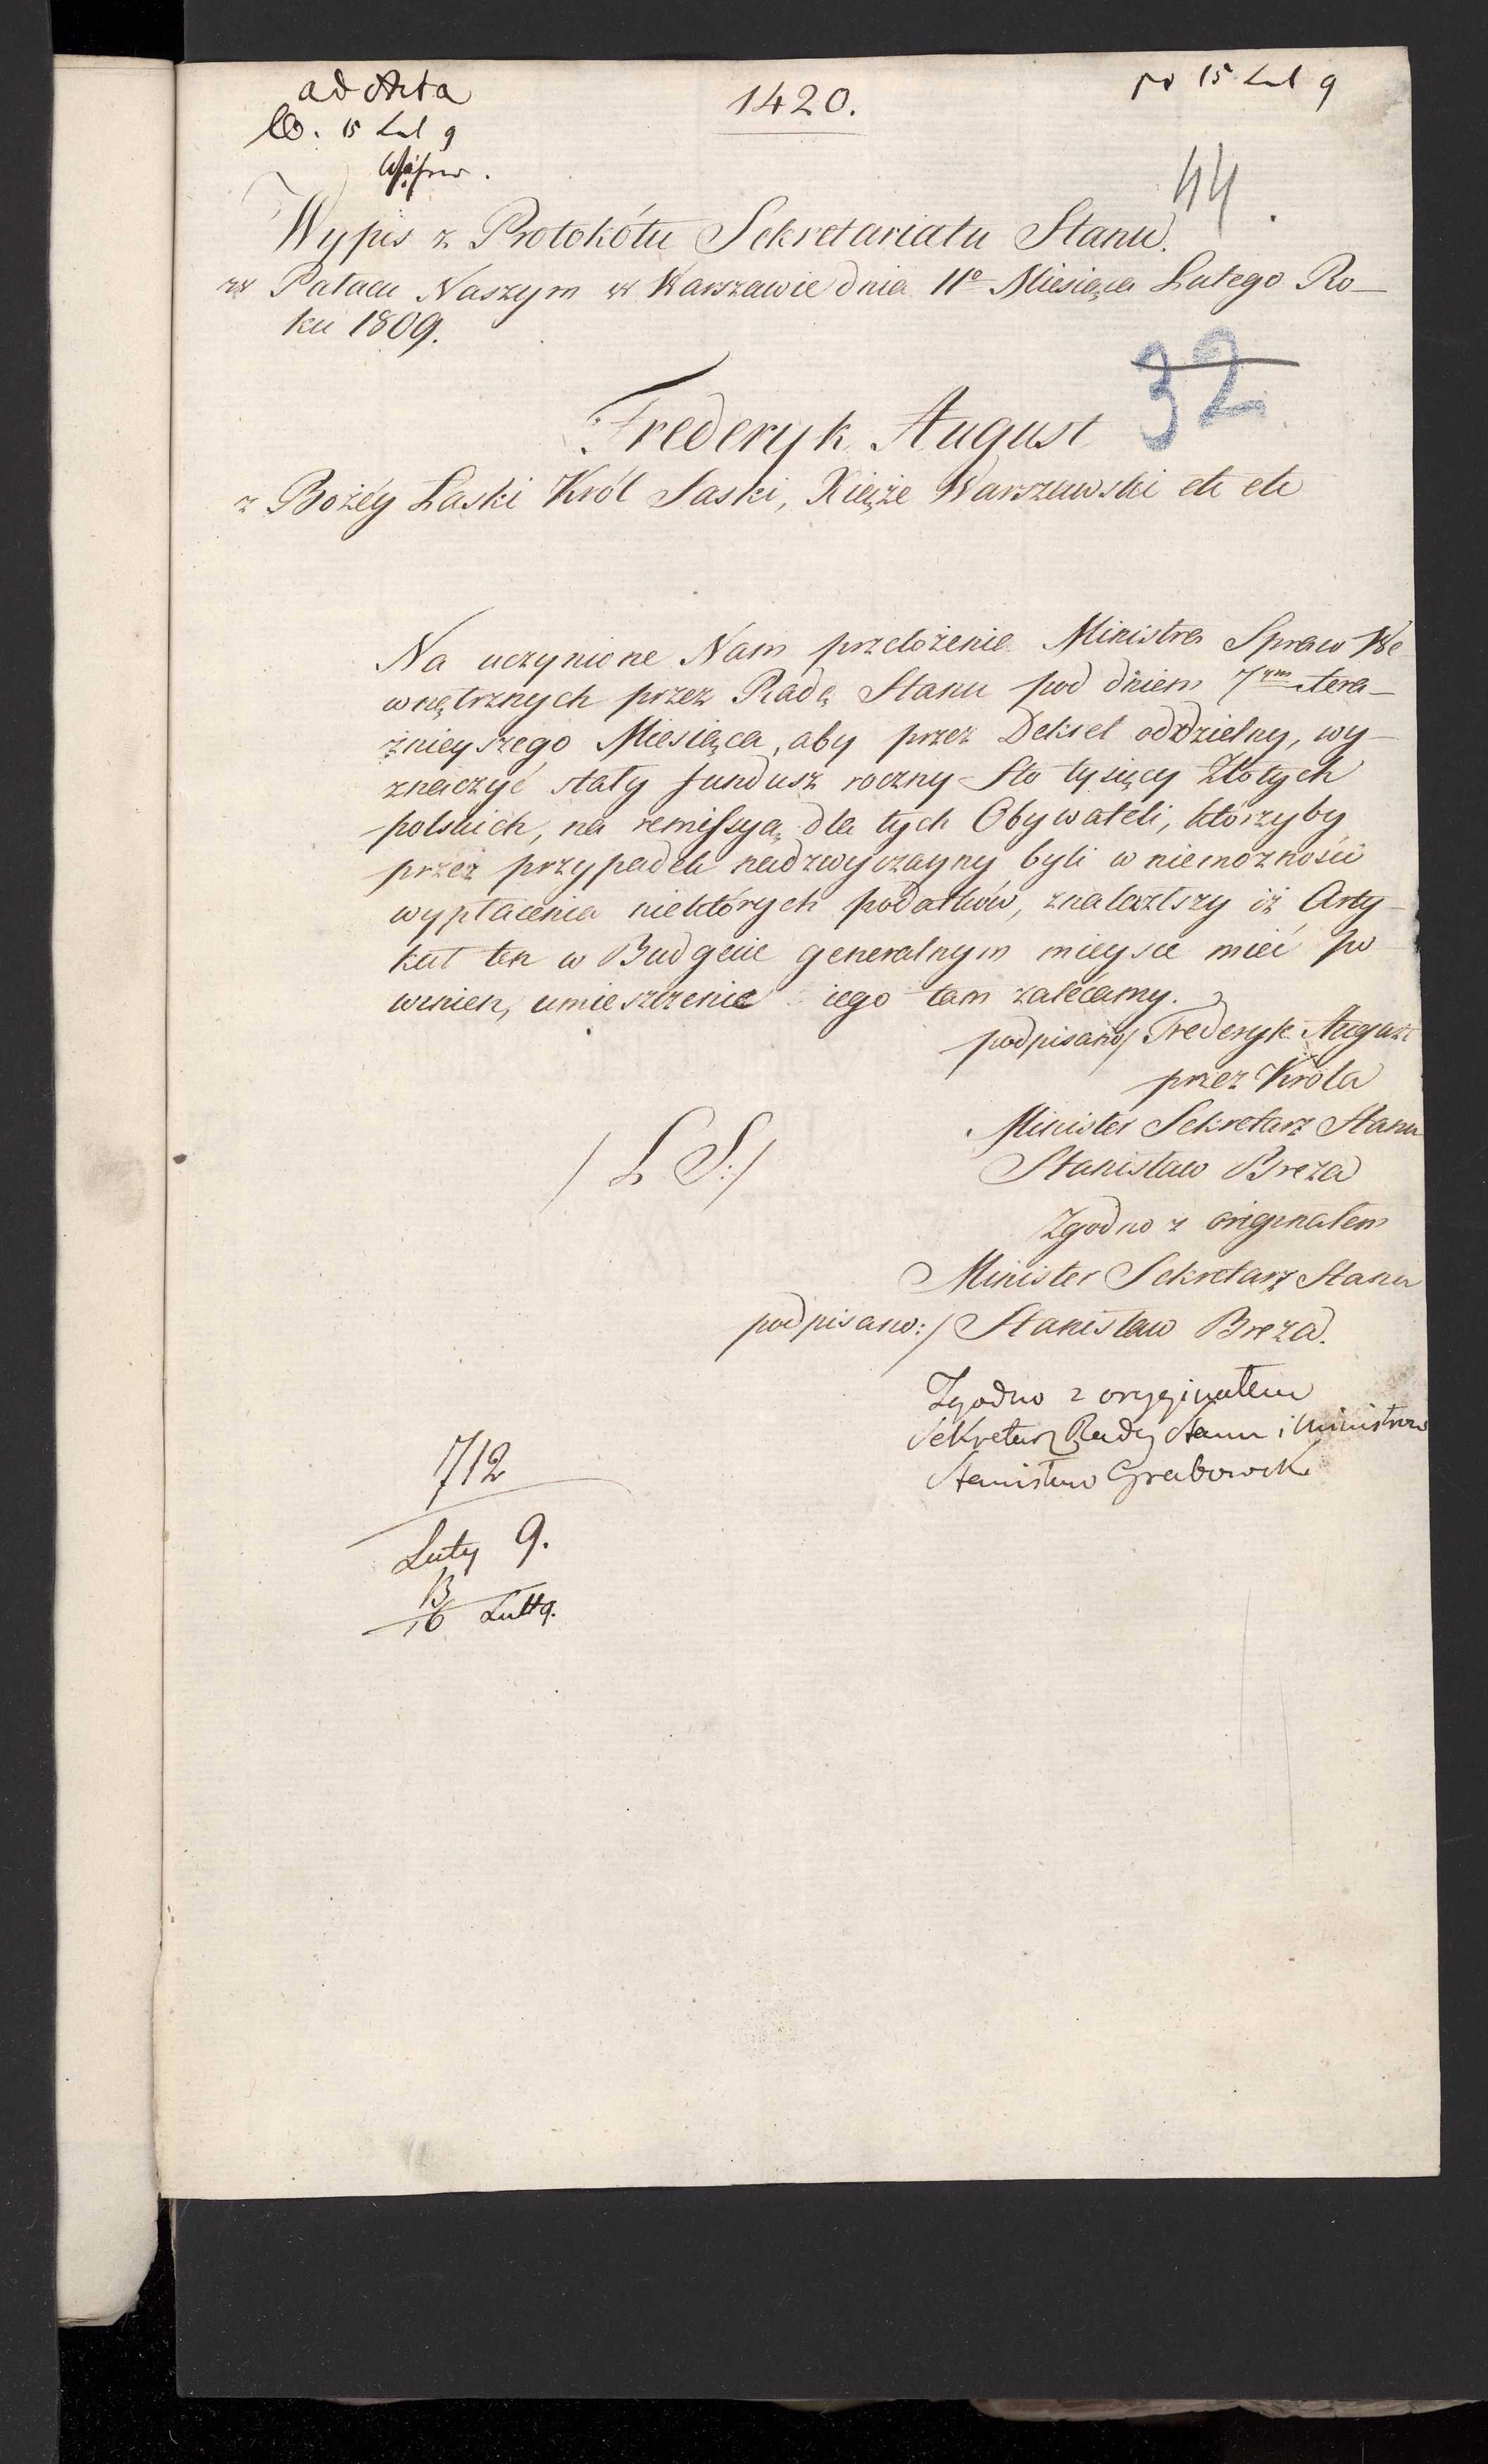 ad Acta
1420.
15 Lut 9
15 Lut 9
44.
Wypis z Protokółu Sekretariatu Stanu.
w Pałacu Naszym w Warszawie dnia 11º Miesiąca Lutego Ro-
ku 1809.
32
Frederyk August
z Bożéy Łaski Król Saski, Xiąże Warszawski etc etc
Na uczynione Nam przełożenie Ministra Spraw We
wnętrznych przez Radę Stanu pod dniem 7ym tera-
znieyszego Miesiąca, aby przez Dekret oddzielny, wy-
znaczyć stały fundusz roczny Sto tysięcy Złotych
polskich, na remissyą dla tych Obywateli, którzyby
przez przypadek nadzwyczayny byli w niemożności
wypłacenia niektórych podatków, znalazłszy iż Arty-
kuł ten w Budgecie generalnym mieysce mieć po
winien, umieszczenie iego tam zalecamy.
podpisano/ Frederyk August
przez Króla
Minister Sekretarz Stanu
/ L S:/
Stanisław Breza
Zgodno z originałem
Minister Sekretarz Stanu
podpisano:/ Stanisław Breza.
Zgodno z oryginałem
Sekretarz Rady Stanu i Ministrów
Stanisław Grabowski
712
Luty 9.
13
16 Lut 9.